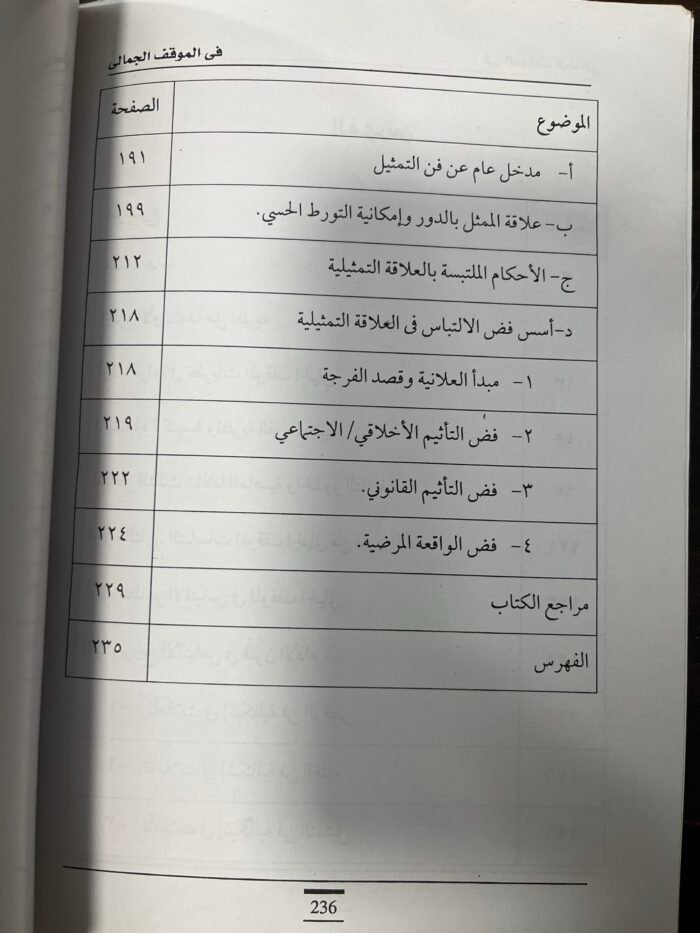 فى الموقف الجمالى
الموضوع الصفحة
أ- مدخل عام عن فن التمثيل ١٩١
ب- علاقة الممثل بالدور وإمكانية التورط الحسي. ١٩٩
ج- الأحكام الملتبسة بالعلاقة التمثيلية ٢١٢
د-أسس فض الالتباس فى العلاقة التمثيلية ٢١٨
١- مبدأ العلانية وقصد الفرجة ٢١٨
٢- فض التأثيم الأخلاقي/ الاجتماعي ٢١٩
٣- فض التأثيم القانوني. ٢٢٢
٤- فض الواقعة المرضية. ٢٢٤
مراجع الكتاب ٢٢٩
الفهرس ٢٣٥
236